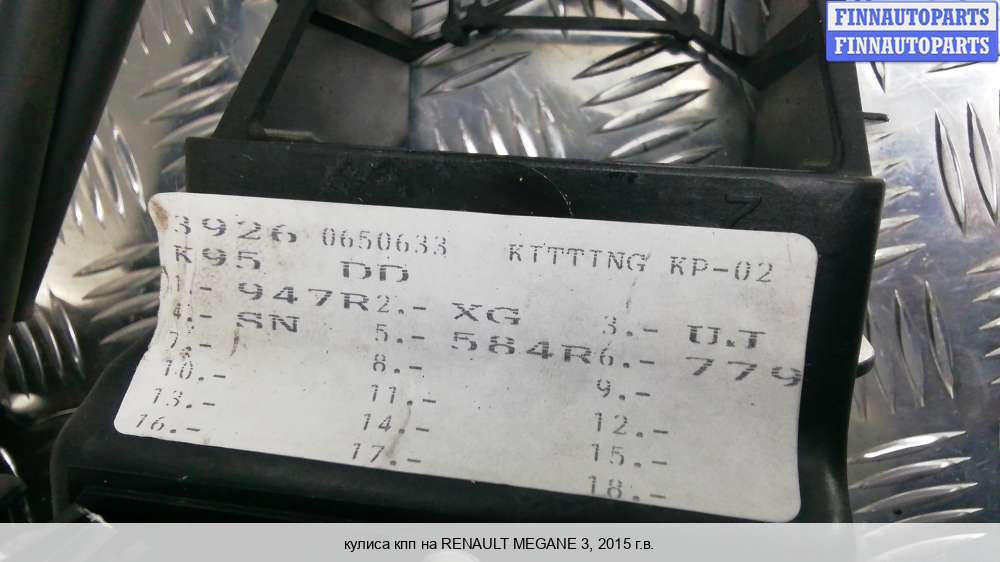 FINNAUTOPARTS
FINNAUTOPARTS
7
3926 0650633 KITTING KP-02
K95 DD
1.- 947R 2.- XG 3.- UJ
4.- SN 5.- 584R 6.- 779
7.- 8.- 9.-
10.- 11.- 12.-
13.- 14.- 15.-
16.- 17.- 18.-
кулиса кпп на RENAULT MEGANE 3, 2015 г.в.